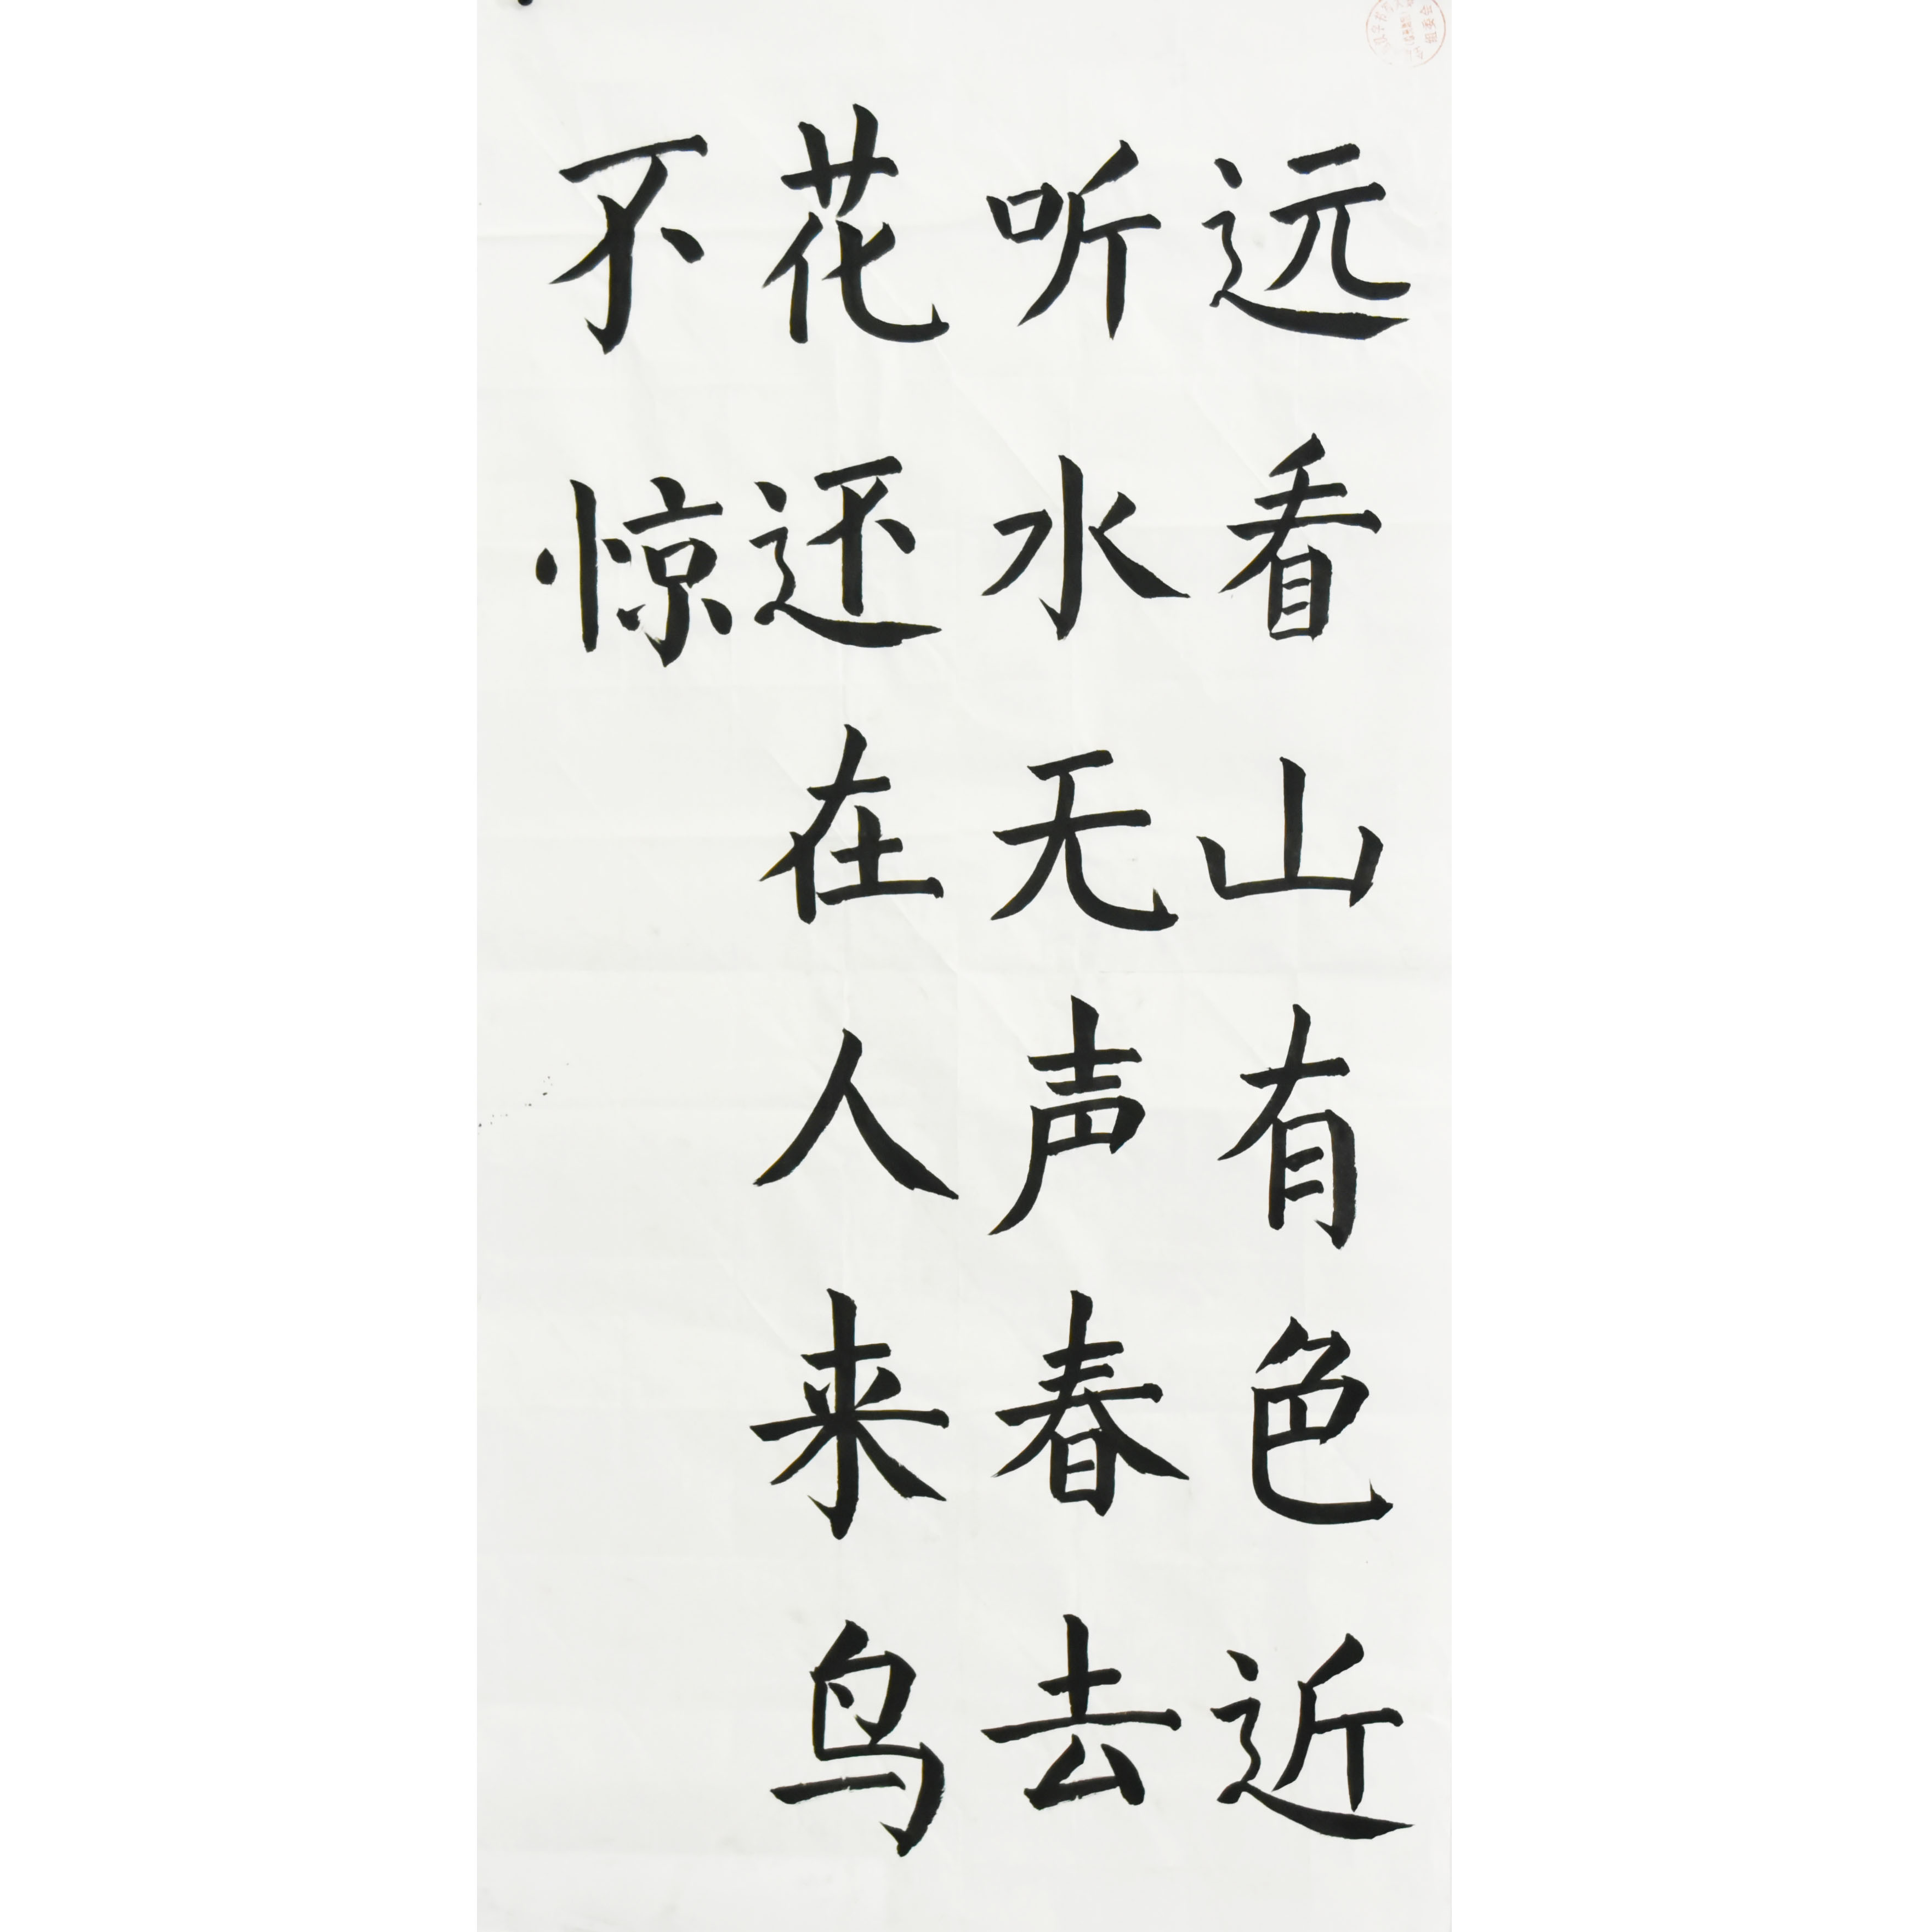 远看山有色近
听水无声春去
花还在人来鸟
不惊